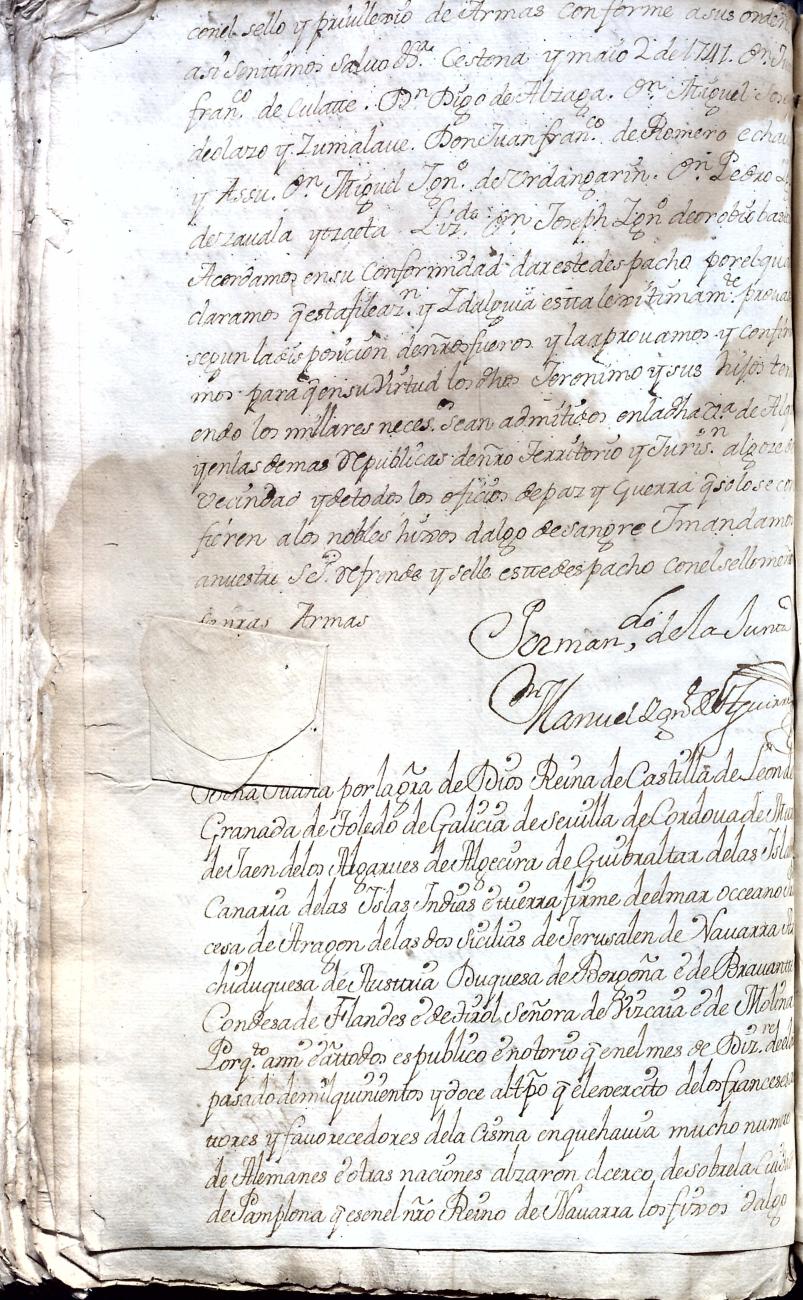 conel sello y privilexio de Armas conforme asus orde
asi sentimos salvo &ra. Cestona y maio 2 de 1741. Dn.
fran.co de Culatte. Dn Digo de Alzaga. Dn. Miguel Jose
deolazo y Zumalave. Don Juan fran.co de Romero echa
y Assu. Dn Miguel Ign.o de Urdangarin. Dn Pedro
dezavala ytzaeta Liz.do Dn Joseph Ign.o deorobio ba
Acordamos ensu Conformidad dar este despacho porelqu
claramos q estafileaz.n y Idalguia estta lexitimam.te prova
segun la disposicion denros fueros y la aprovamos y confir
mos para q ensu Virtud los dhos Jeronimo y sus hijos ten
endo los millares neces.os sean admitidos enla dha de Al
yenlas demas Republicas denro Territorio y Juris.n algoze d
vecindad y detodos los oficios de paz y Guerra q solo se con
fieren alos nobles hixos dalgo de sangre I mandamo
anuestro Sc.o Refrende y selle estte despacho conel sello
denras Armas
Por man.do de la Junta
Dn Manuel Ign.o de Aguirre
Doña Juana por la gra de Dios Reina de Castilla de Leon d
Granada de Toledo de Galicia de sevilla de Cordova de Mur
de Jaen delos Algarves de Algecira de Guibraltar delas Isla
Canaria delas Islas Indias e tierra firme deel mar occeano
cesa de Aragon delas dos sicilias de Jerusalen de Navarra
chiduquesa de Austria Duquesa de Borgoña e de Bravantte
Condesa de Flandes e de Tirol señora de Vizcaia e de Molina
Porq.to ami e atodos es publico e notorio q enel mes de Diz.re deel
pasado de mil quinientos y doce al tpo q el exercito delos franceses
tores y favorecedores dela cisma en que havia mucho nume
de Alemanes e otras naciones alzaron el cerco de sobre la Ciuda
de Pamplona q es enel nro Reino de Navarra los fixos dalgo